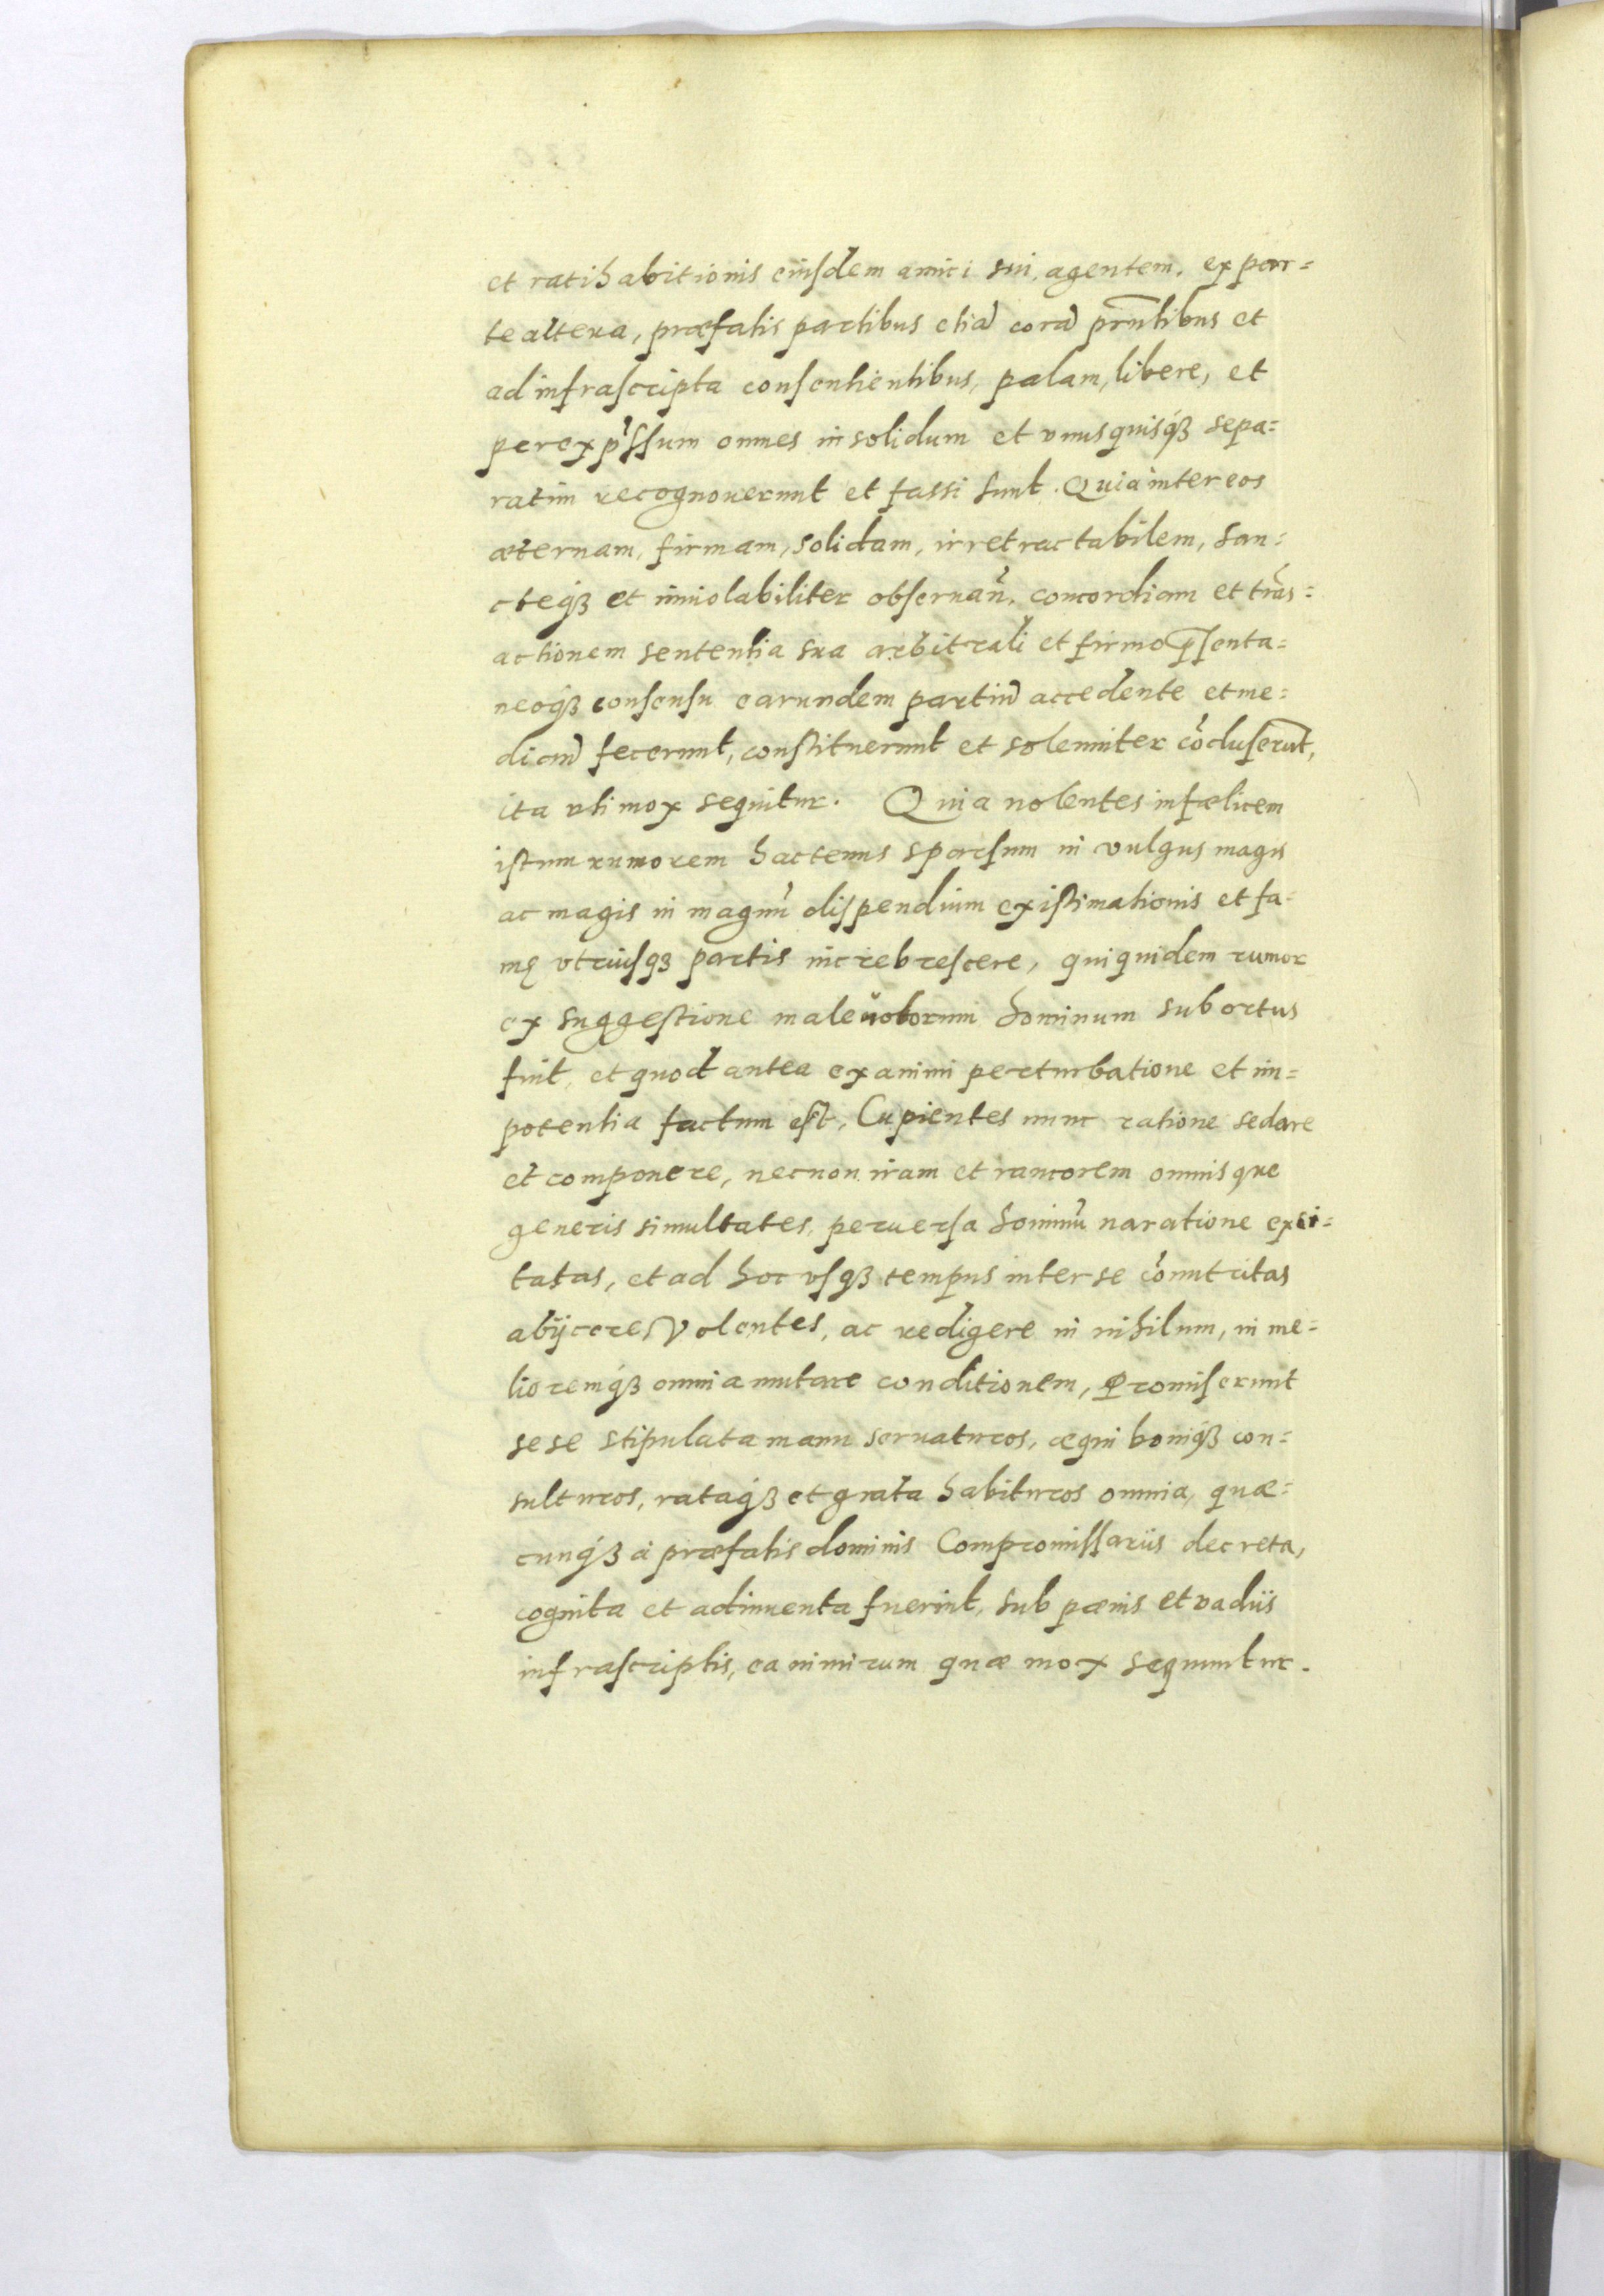 et ratihabitionis eiusdem amici sui, agentem, ex par=
te altera, præfatis partibus etiã corã prñtibus et
ad infrascripta consentientibus, palam, libere, et
per exp̃ssum omnes in solidum et vnusquisq́ꝫ sepa=
ratim recognouerunt et fassi sunt. Quia inter eos
æternam, firmam, solidam, irretractabilem, san=
cteq́ꝫ et inuiolabiliter obseruañ, concordiam et trãs=
actionem sententia sua arbitrali et firmo p̃senta=
neoq́ꝫ consensu earundem partiũ accedente et me=
diañ fecerunt, constituerunt et solenniter cõcluserũt,
ita vti mox sequitur. Quia nolentes infælicem
istum rumorem hactenus sparsum in vulgus magis
ac magis in magnũ dispendium existimationis et fa=
mę vtriusqꝫ partis increbrescere, qui quidem rumor
ex suggestione maleuolorum hominum subortus
fuit, et quod antea ex animi perturbatione et im=
potentia factum est, Cupientes nunc ratione sedare
et componere, necnon iram et rancorem omnisque
generis simultates, peruersa hominũ naratione exci=
tatas, et ad hoc vsqꝫ tempus inter se cõnutritas
abijcere, Volentes, ac redigere in nihilum, in me=
lioremq́ꝫ omnia mutare conditionem, Promiserunt
sese stipulata manu seruaturos, æqui boniq́ꝫ con=
sulturos, rataq́ꝫ et grata habituros omnia, quæ=
cunq́ꝫ à præfatis dominis Compromissariis decreta,
cognita et adinuenta fuerint, sub pœnis et vadiis
infrascriptis, ea nimirum quæ mox sequuntur.